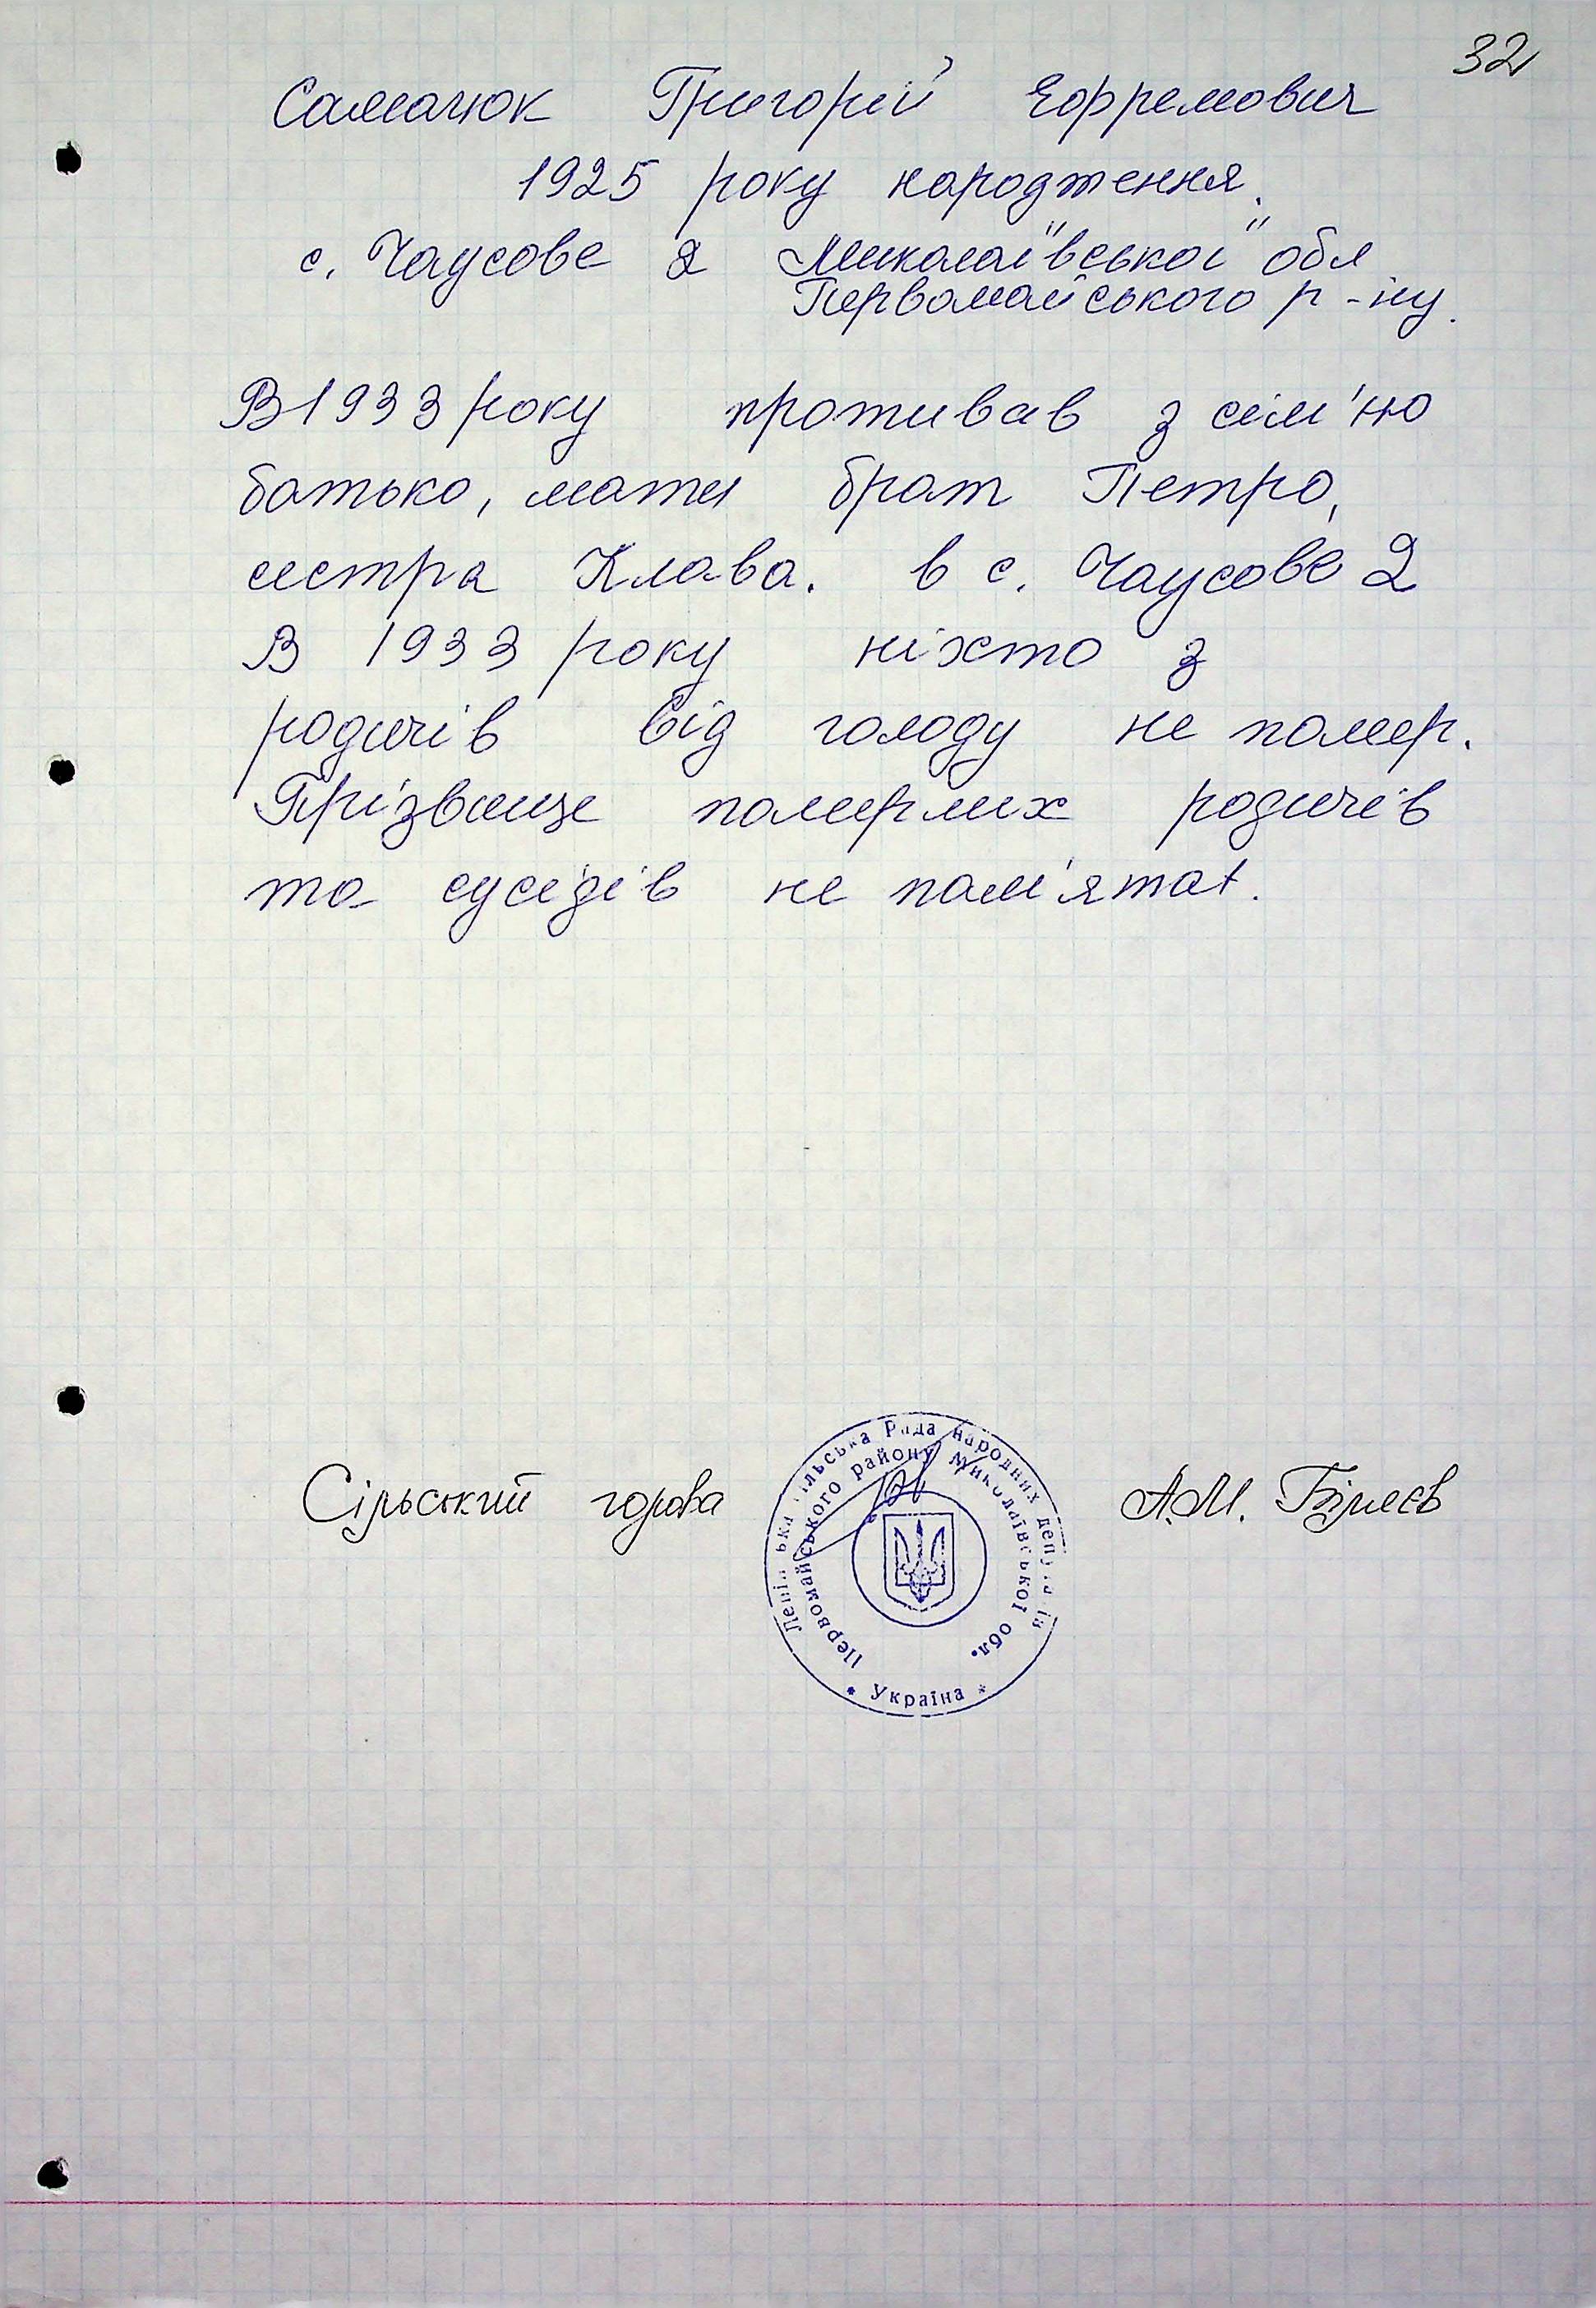 32
Самачюк Григорій Єфремович
1925 року народження.
с. Чаусове 2 Миколаївської обл.
Первомайського р-ну.
В 1933 року проживав з сім'ю
батько, мати брат Петро,
сестра Клава. в с. Чаусове 2
В 1933 року ніхто з
родичів від голоду не помер.
Прізвище померлих родичів
та сусідів не пам'ятає.
Сільський голова А.М.
Рада народних
Первомайського району Миколаївської обл.
* Україна *